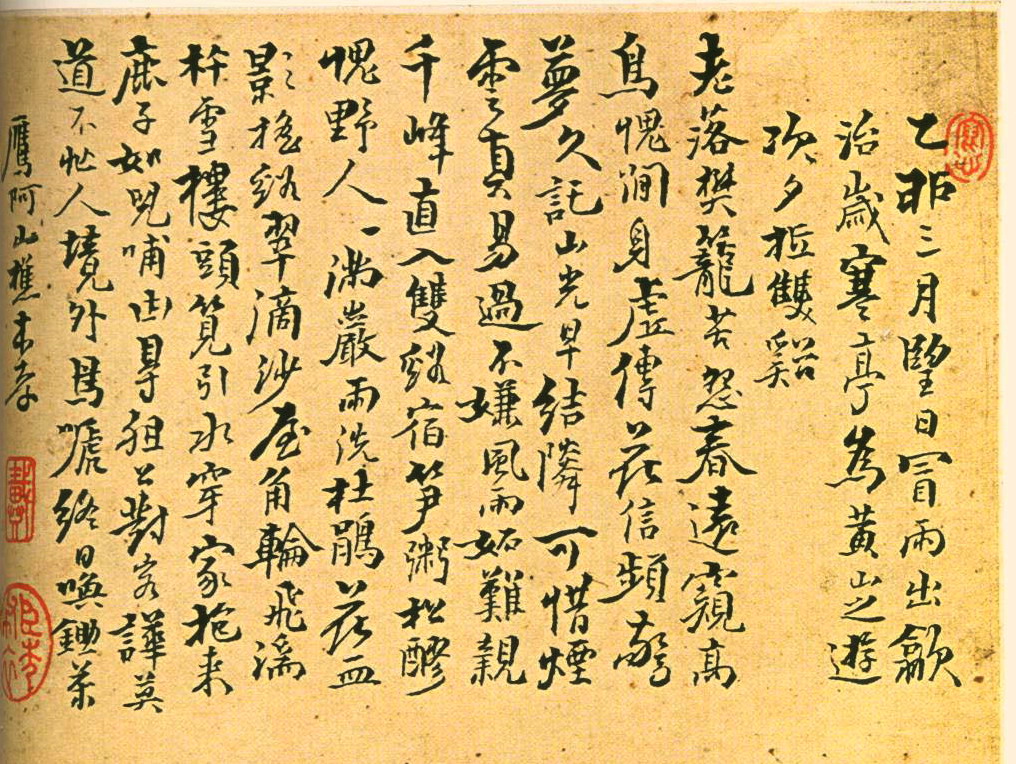 乙卯三月望日冒雨出歙
治歲寒亭為黃山之遊
次夕抵雙谿
老落樊籠苦怨春遠窺高
鳥愧閒身虛傳花信頻驚
夢久託山光早結隣可惜煙
雲真易過不嫌風雨妬難親
千峰直入雙谿宿筍粥松醪
愧野人 一滿巖雨洗杜鵑花血
影搖谿翠滴沙屋角輪飛湍
杵雪樓頭筧引水穿家抱来
鹿子如兒哺出尋狙公對客譁莫
道不忙人境外鳥嘑終日喚鋤茶
鷹阿山樵本孝